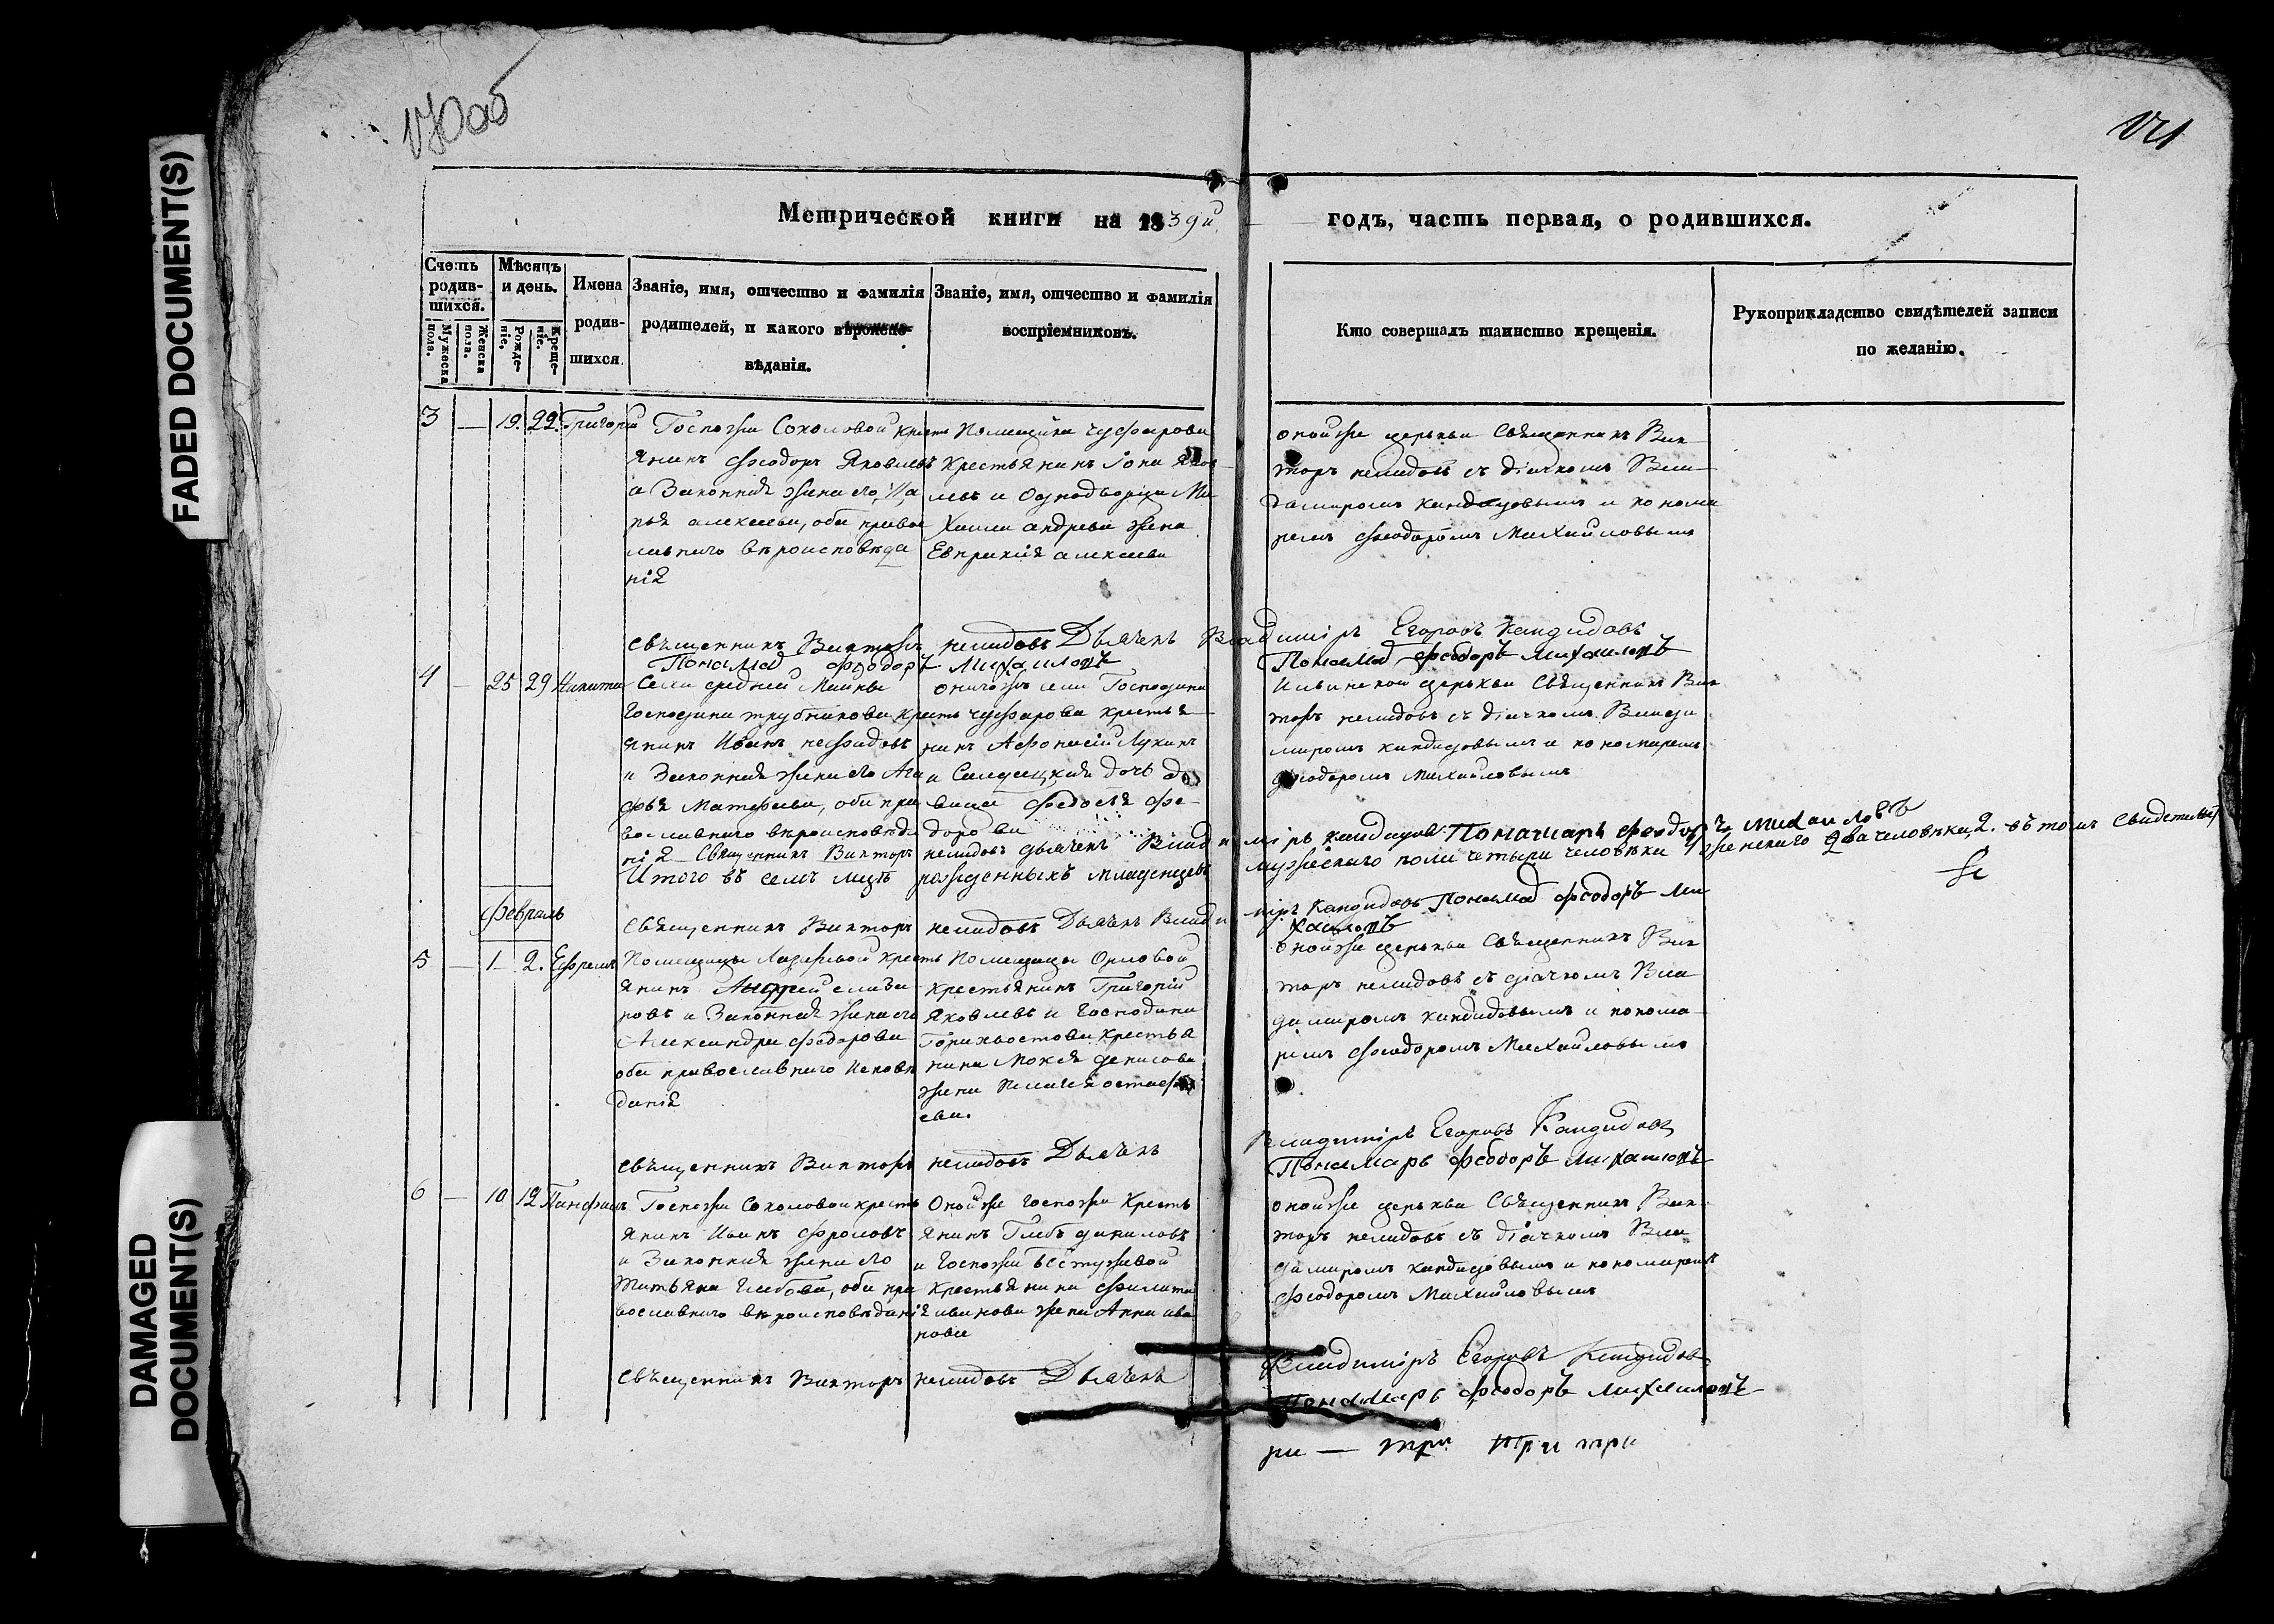 FADED DOCUMENT(S)
DAMAGED
DOCUMENT(S)
Метрической книги на 1839й
годъ, часть первая, о родившихся.
Счетъ родив-шихся.
Мужеска пола.
Женска пола.
Мѣсяцъ и день.
Рожде-ніе.
Креще-ніе.
Имена родив-шихся.
Званіе, имя, отчество и фамилія
родителей, и какого вѣроиспо-
вѣданія.
Званіе, имя, отчество и фамилія
воспріемниковъ.
Кто совершалъ таинство крещенія.
Рукоприкладство свидѣтелей записи
по желанію.
3 — 19. 22. Григорій
Госпожи Соколовой кресть
янинъ Феодоръ Яковлевъ
и Законная жена его
алексеева, оба право
славнаго вѣроисповѣда
нія
Помещика Чуфарова
Крестьянинъ Іона Яков
левъ и Однодворца Ми
хаила андреева жена
Евпраксія алексеева
оной же церкви Священникъ Вик
торъ нелидовъ съ діячкомъ Вла
димиромъ кандидовымъ и понома
ремъ Феодоромъ Михайловымъ
Священникъ Викторъ нелидовъ Дьячекъ Владиміръ Егоровъ Кандидовъ
Пономар Феодоръ Михаиловъ
Пономар Феодоръ Михаиловъ
4 — 25 29 Никита
Села средней Маинвы
Господина трубникова кресть
янинъ Иванъ
и Законная жена его Ага
фья Матфеева, оба пра
вославнаго вѣроисповѣда
нія
онагожъ села Господина
чуфарова крестья
нинъ Афонасій Лукинъ
и дочь
Федосья Фе-
дорова
Ильинской церкви Священникъ Вик
торъ нелидовъ съ діячкомъ Влади
миромъ кандидовымъ и пономаремъ
Феодоромъ Михайловымъ
Священникъ Викторъ нелидовъ дьячекъ Владиміръ кандидовъ Пономарь Феодоръ Михаиловъ
Итого въ семъ мцѣ рожденныхъ младенцевъ мужескаго пола четыри человѣка женскаго Два человѣка, 2. въ томъ свидетельс
Февраль
Священникъ Викторъ нелидовъ Дьячекъ Владиміръ Кандидовъ Пономар Феодоръ Ми
хаиловъ
5 — 1 — 2. Ефремъ
Помещицы Лазаревой кресть
янинъ Андрей
ровъ и Законная жена его
Александра федорова
оба православнаго Исповѣ
данія
Помещицы Орловой
крестьянинъ Григорій
Яковлевъ и Господина
Горихвостова Крестья
нина Мокея денисова
жена
ева.
оной же церкви Священникъ Вик
торъ нелидовъ съ діячкомъ Вла
димиромъ кандидовымъ и понома
ремъ Феодоромъ Михайловымъ
Священникъ Викторъ нелидовъ Дьячекъ
Владиміръ Егоровъ Кандидовъ
Пономарь Феодоръ Михаиловъ
6 — 10 12 Панфилъ
Госпожи Соколовой кресть
янинъ Иванъ Фроловъ
и Законная жена его
Татьяна Глебова, оба пра
вославнаго вѣроисповѣданія
Оной же госпожи Кресть
янинъ Глебъ даниловъ
и Госпожи Бестужевой
Крестьянина
иванова жена Анна ива
нова
оной же церкви Священникъ Вик
торъ нелидовъ съ діячкомъ Вла
димиромъ кандидовымъ и пономаремъ
Феодоромъ Михайловымъ
Священникъ Викторъ нелидовъ Дьячекъ
Владиміръ Егоровъ Кандидовъ
Пономарь Феодоръ Михаиловъ
ри — три три три